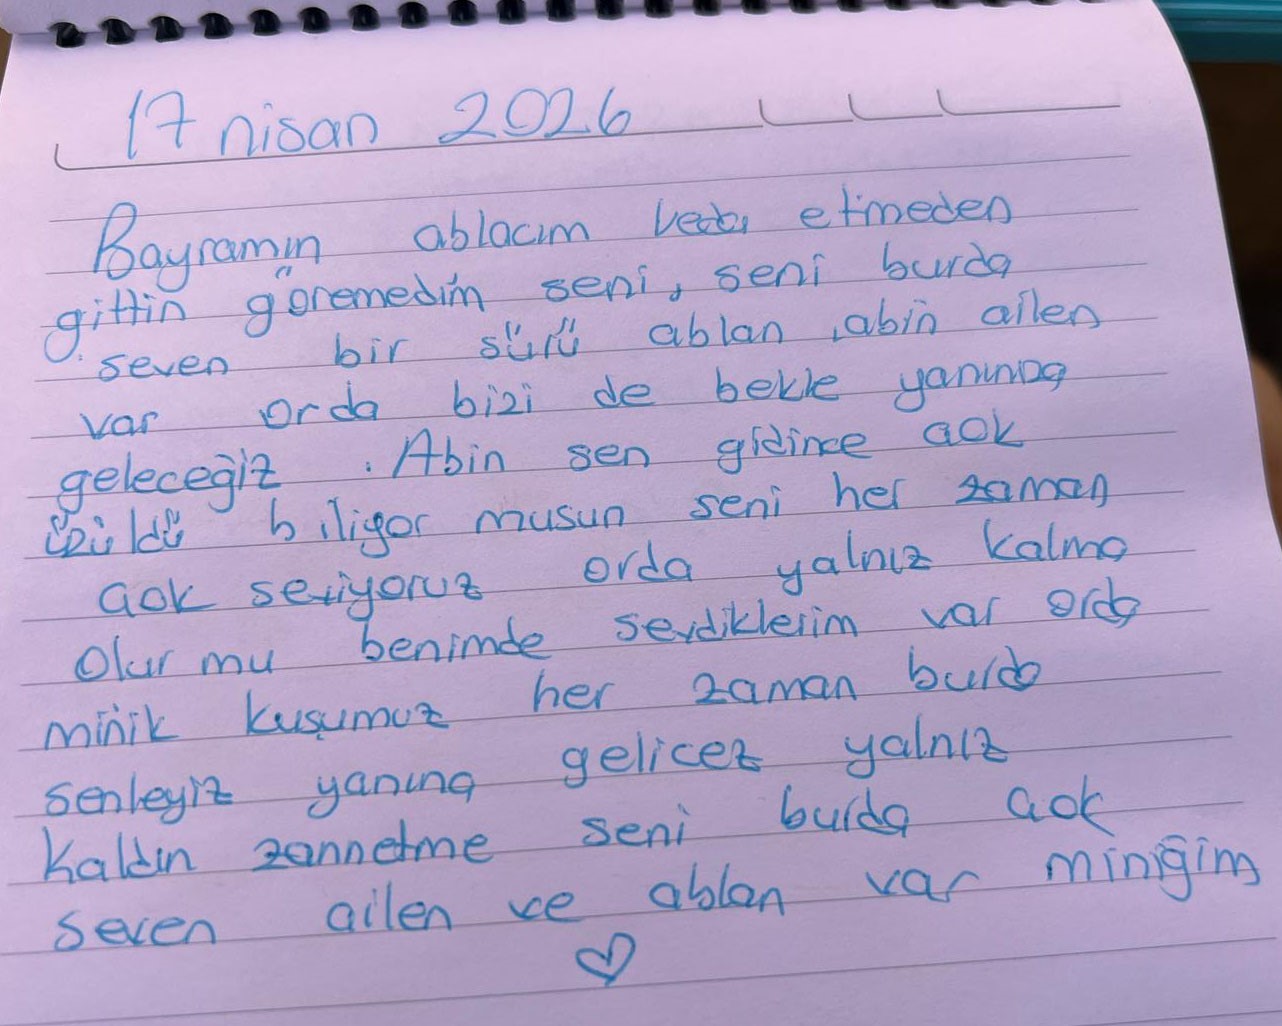 17 nisan 2026
Bayramın ablacım veda etmeden
gittin göremedim seni, seni burda
seven bir sürü ablan, abin ailen
var orda bizi de bekle yanınna
geleceğiz. Abin sen gidince çok
üzüldü biliyor musun seni her zaman
çok seviyoruz orda yalnız kalma
olur mu benimde sevdiklerim var orda
minik kuşumuz her zaman burda
senleyiz yanına gelicez yalnız
kaldın zannetme seni burda çok
seven ailen ve ablan var miniğim